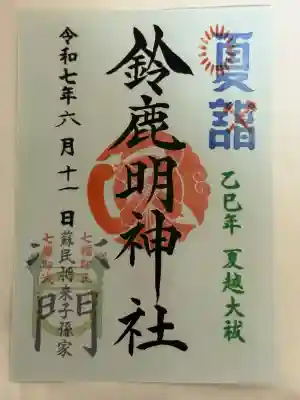 夏詣
乙巳年 夏越大祓
鈴鹿明神社
令和七年六月十一日
蘇民将来子孫家
七福即生
七難即滅
門